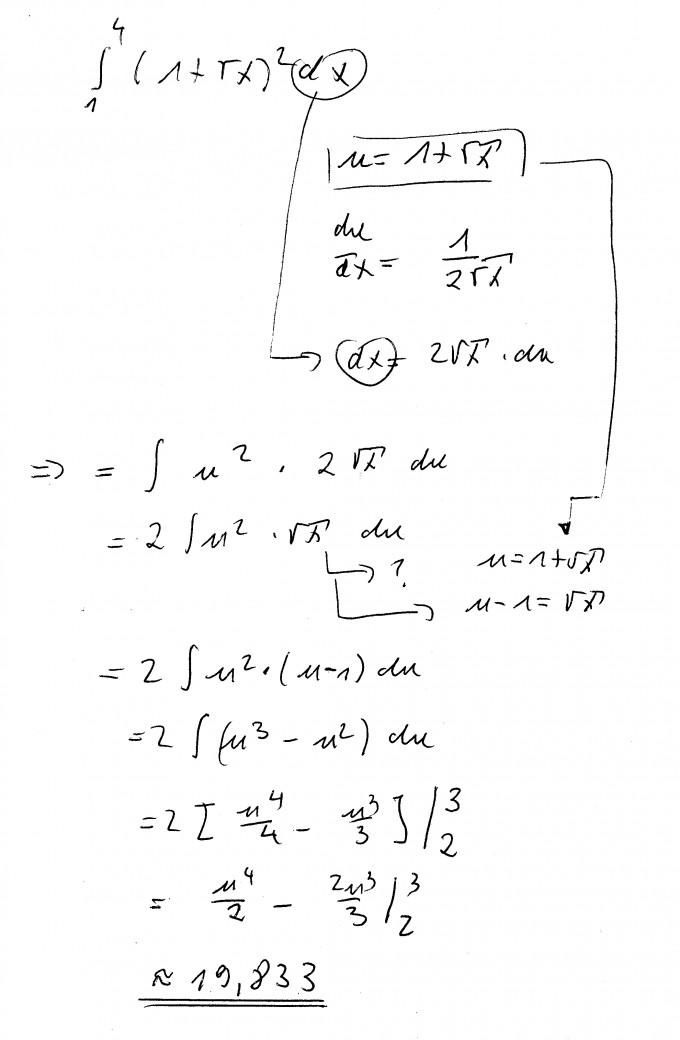 ∫₁⁴ (1+√x)² dx
u = 1+√x
du/dx = 1/(2√x)
dx = 2√x · du
⇒ = ∫ u² · 2√x du
= 2 ∫ u² · √x du
? u = 1+√x
u-1 = √x
= 2 ∫ u² · (u-1) du
= 2 ∫ (u³ - u²) du
= 2 [ u⁴/4 - u³/3 ] |₂³
= u⁴/2 - 2u³/3 |₂³
≈ 19,833